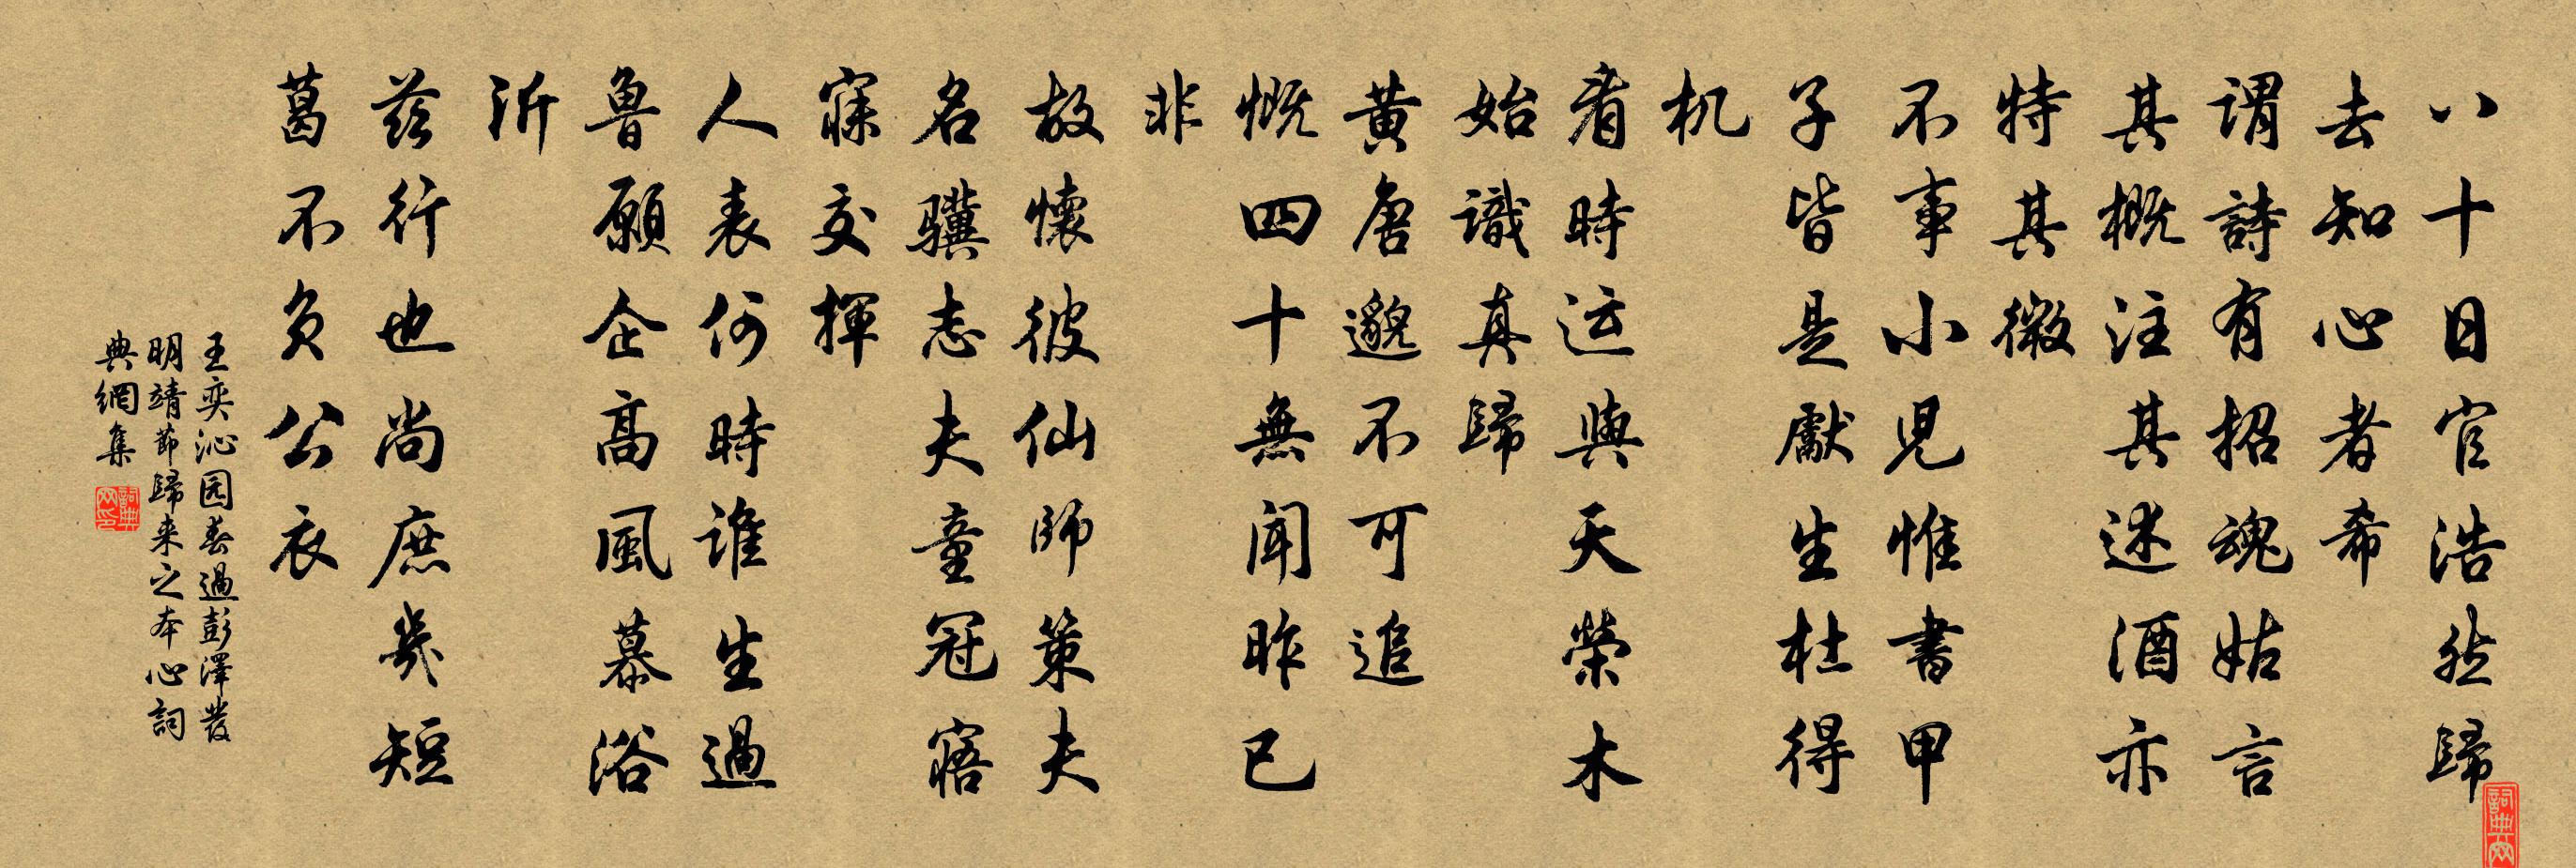 八十日官浩然歸
去知心者希
謂詩有招魂姑言
其概注其述酒亦
特其微
不事小兒惟書甲
子皆是獻生杜得
机
看時运與天榮木
始識真歸
黄唐邈不可追
慨四十無聞昨已
非
故懷彼仙師策夫
名驥志夫童冠寤
寐交揮
人表何時誰生過
魯願企高風慕浴
沂
茲行也尚庶幾短
葛不負公衣
王奕沁园春過彭澤發
明靖節歸来之本心詞
典網集
詞典
詞典网